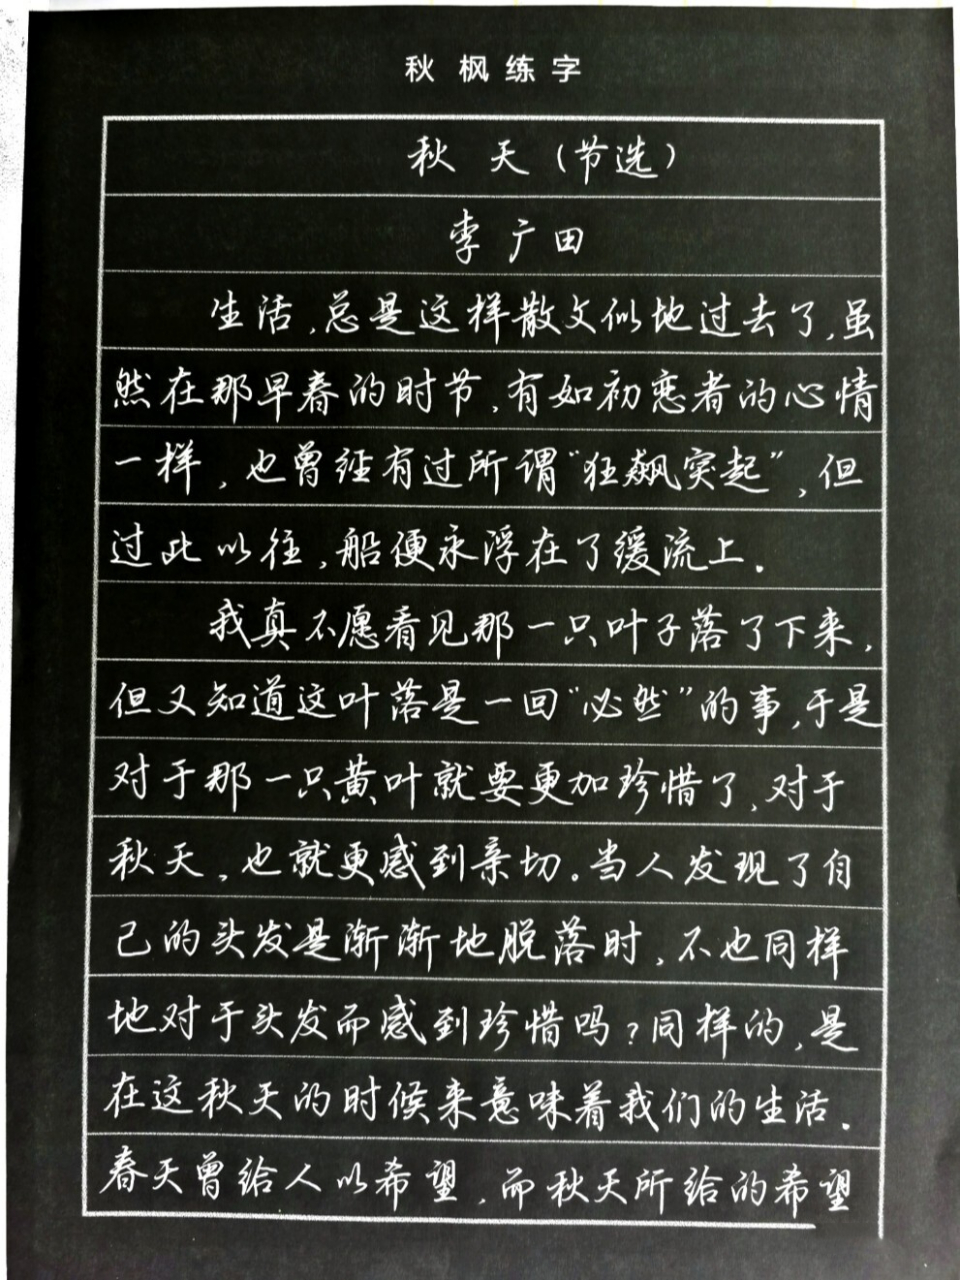 秋枫练字
秋天(节选)
李广田
生活,总是这样散文似地过去了,虽
然在那早春的时节,有如初恋者的心情
一样,也曾经有过所谓“狂飙突起”,但
过此以往,船便永浮在了缓流上。
我真不愿看见那一只叶子落了下来,
但又知道这叶落是一回“必然”的事,于是
对于那一只黄叶就要更加珍惜了,对于
秋天,也就更感到亲切。当人发现了自
己的头发是渐渐地脱落时,不也同样
地对于头发而感到珍惜吗?同样的,是
在这秋天的时候来意味着我们的生活。
春天曾给人以希望,而秋天所给的希望